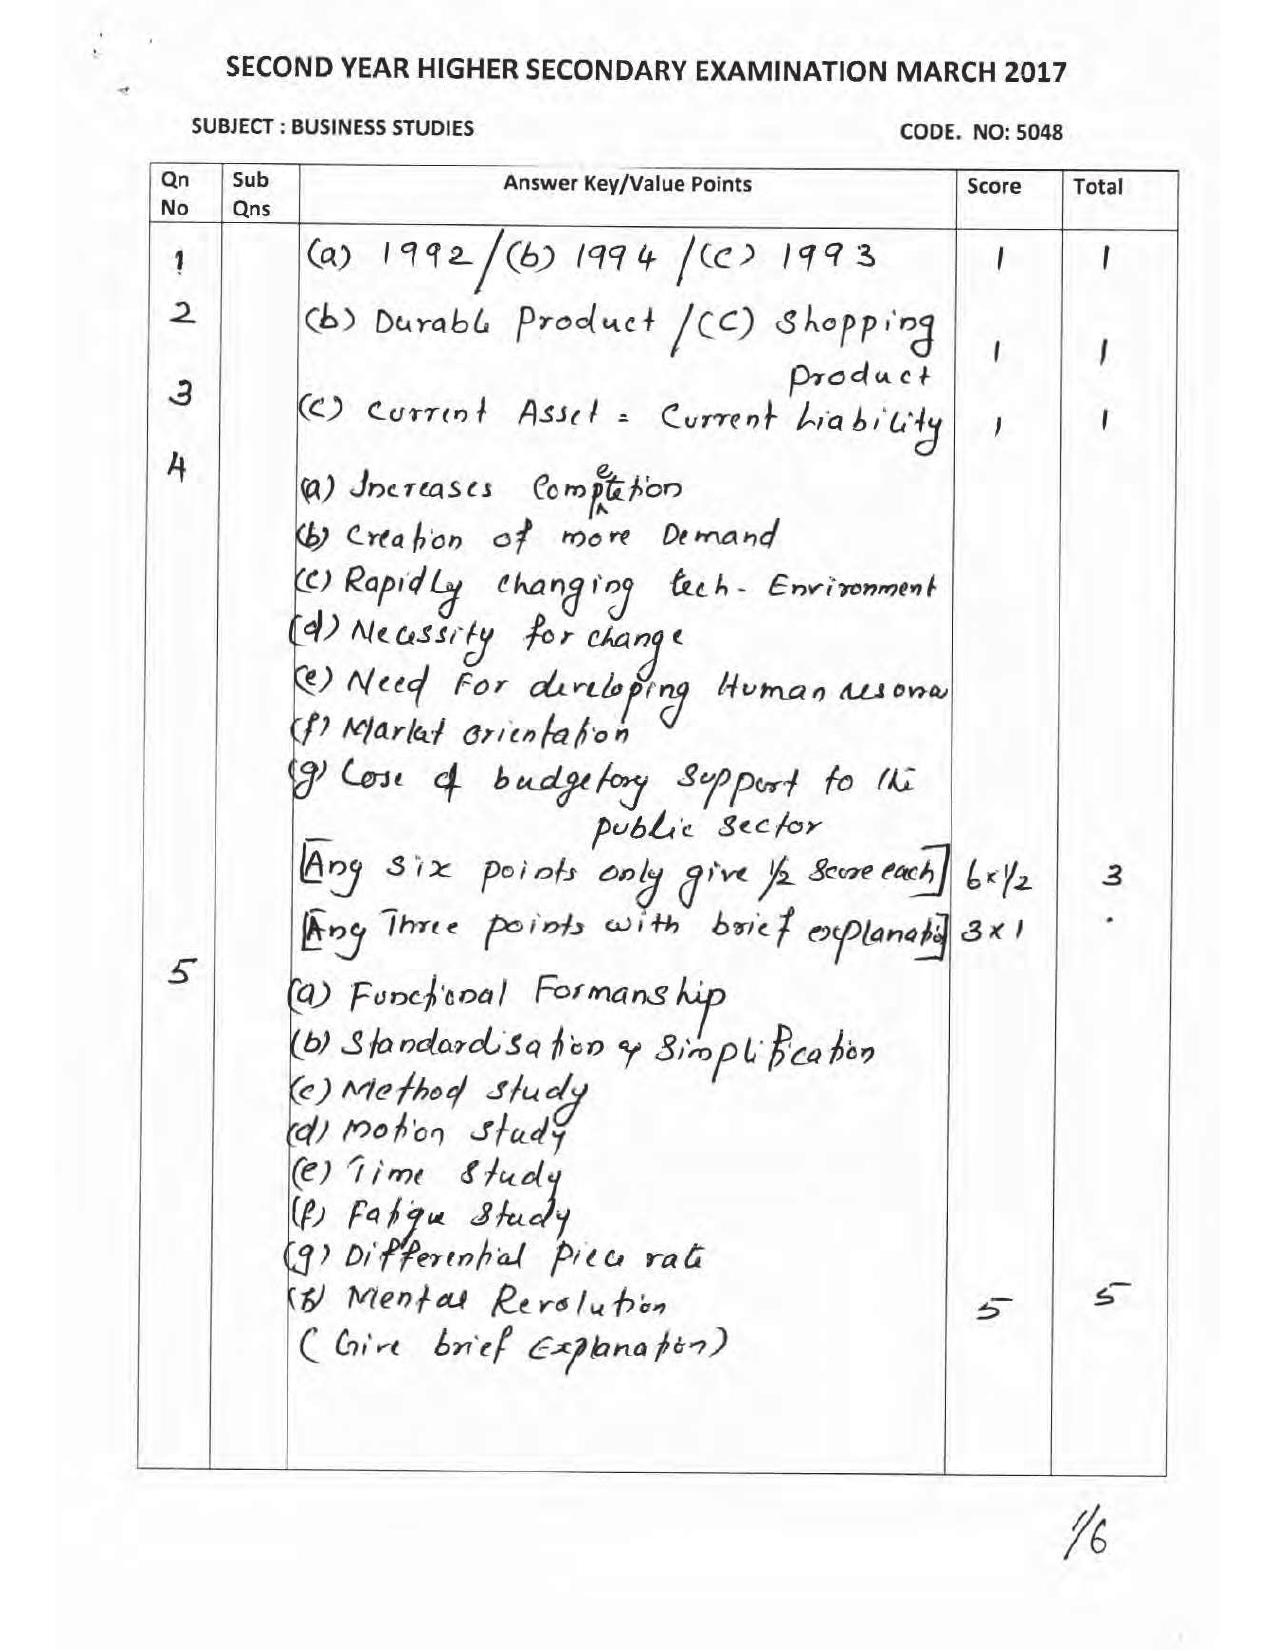 SECOND YEAR HIGHER SECONDARY EXAMINATION MARCH 2017
SUBJECT : BUSINESS STUDIES
CODE. NO: 5048
Qn No Sub Qns Answer Key/Value Points Score Total
1 (a) 1992 / (b) 1994 / (c) 1993 1 1
2 (b) Durable Product / (C) Shopping
product 1 1
3 (c) Current Asset = Current Liability 1 1
4
(a) Increases Competetion
(b) Creation of more Demand
(c) Rapidly changing tech- Environment
(d) Necessity for change
(e) Need For developing Human
(f) Market orientation
(g) Lose of budgetory Support to the
public sector
[Any six points only give 1/2 Score each] 6×1/2 3
[Any Three points with brief explanation] 3×1
5
(a) Functional Formanship
(b) Standardisation & Simplification
(c) Method study
(d) Motion study
(e) Time study
(f) Fatigue Study
(g) Differential Piece rate
(h) Mental Revolution 5 5
( Give brief Explanation)
1/6